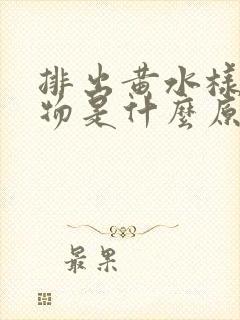 排出黄水樣
物是什麼原
最果